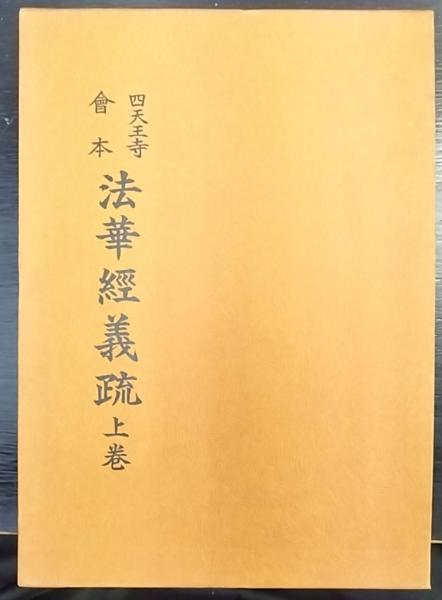 四天王寺
會本
法華經義疏上卷